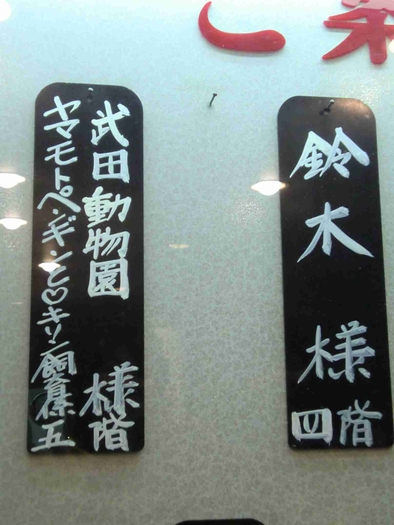 鈴木 様
四階
武田動物園 様
ヤマモトペンギンと♡キリン飼育係
五階